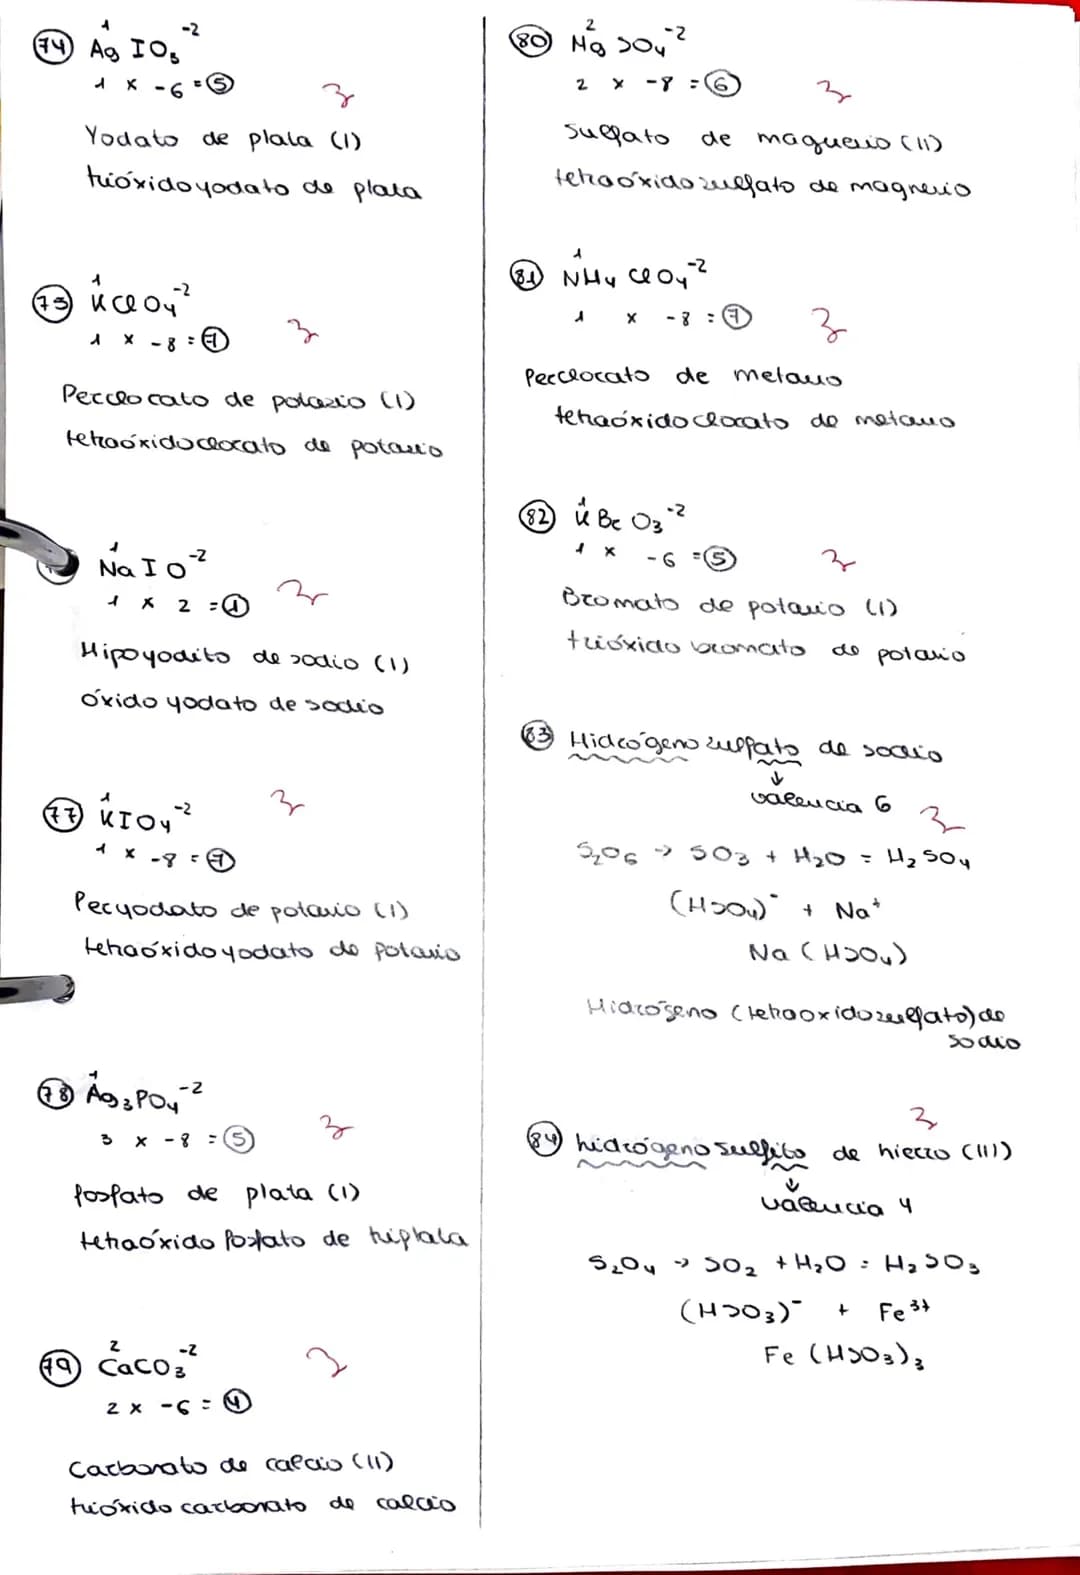 74 Ag¹ IO₃⁻²
1 x -6 = 5
Yodato de plata (I)
trióxidoyodato de plata
75 K¹ClO₄⁻²
1 x -8 = 7
Perclorato de potasio (I)
tetraóxidoclorato de potasio
Na¹ I O⁻²
1 x 2 = 1
Hipoyodito de sodio (I)
óxido yodato de sodio
77 K¹IO₄⁻²
1 x -8 = 7
Peryodato de potasio (I)
tetraóxidoyodato de potasio
78 Ag¹₃PO₄⁻²
3 x -8 = 5
fosfato de plata (I)
tetraóxido fosfato de triplata
79 Ca²CO₃⁻²
2 x -6 = 4
Carbonato de calcio (II)
trióxido carbonato de calcio
80 Mg² SO₄⁻²
2 x -8 = 6
Sulfato de magnesio (II)
tetraóxidosulfato de magnesio
81 NH₄¹ ClO₄⁻²
1 x -8 = 7
Perclorato de metano
tetraóxidoclorato de metano
82 K¹ Br O₃⁻²
1 x -6 = 5
Bromato de potasio (I)
trióxido bromato de potasio
83 Hidrógeno sulfato de sodio
↓
valencia 6
S₂O₆ → SO₃ + H₂O = H₂SO₄
(HSO₄)⁻ + Na⁺
Na (HSO₄)
Hidrógeno (tetraoxidosulfato) de
sodio
84 hidrógeno sulfito de hierro (III)
↓
valencia 4
S₂O₄ → SO₂ + H₂O = H₂SO₃
(HSO₃)⁻ + Fe³⁺
Fe (HSO₃)₃